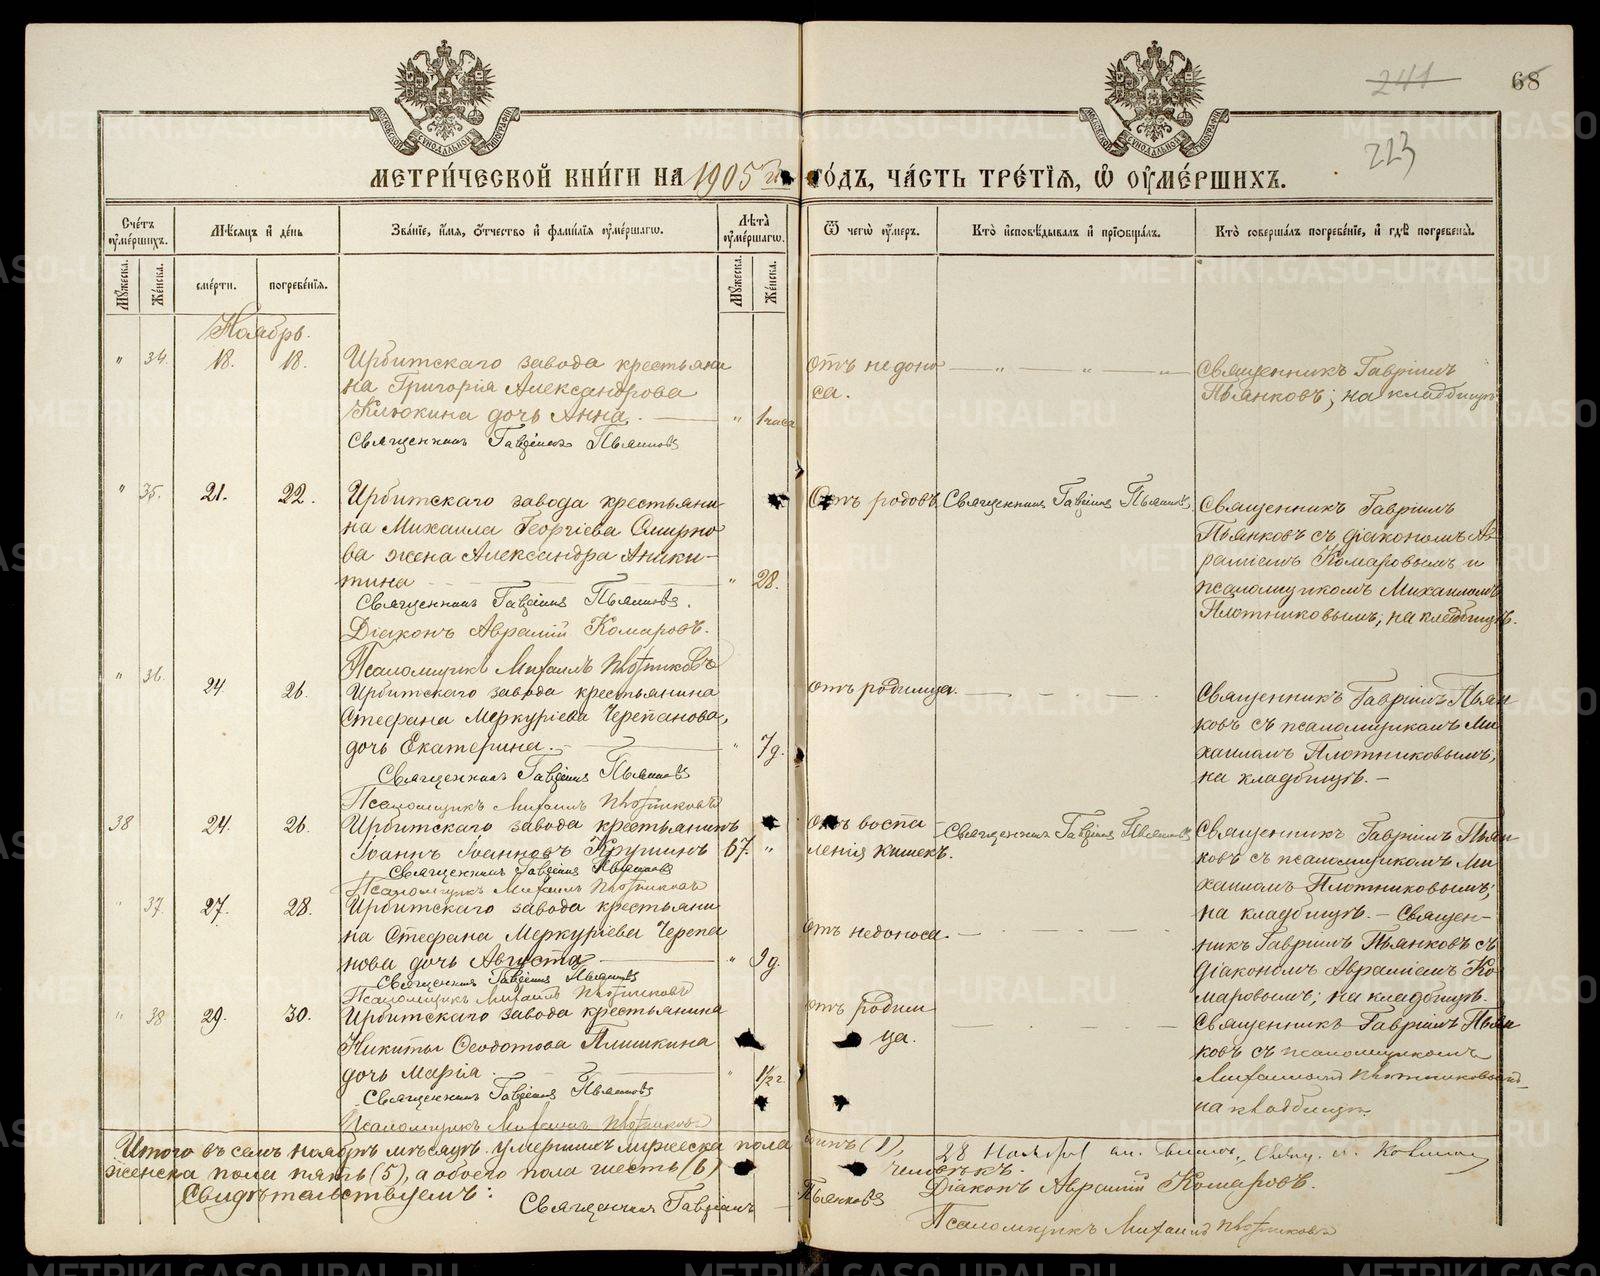 241
68
223
МОСКОВСКОЙ СѴНОДАЛЬНОЙ ТИПОГРАФІИ
МОСКОВСКОЙ СѴНОДАЛЬНОЙ ТИПОГРАФІИ
МЕТРИ́ЧЕСКОЙ КНИ́ГИ НА 1905 й
ГО́ДЪ, ЧА́СТЬ ТРЕ́ТІѦ, Ѡ ОУМЕ́РШИХЪ.
Сче́тъ оуме́ршихъ.
Мѣсяцъ и день
Зва́ніе, и́мя, ѻ́тчество и фамилія оуме́ршагѡ.
Лѣта̀ оуме́ршагѡ.
Ѿ чегѡ̀ оу́меръ.
Кто̀ исповѣ́дывалъ и приѻбща́лъ.
Кто̀ соверша́лъ погребе́ніе, и гдѣ̀ погребены̀.
Мꙋ́жеска.
Же́нска.
сме́рти.
погребе́нія.
Мꙋ́жеска.
Же́нска.
Ноябрь.
" 34. 18. 18. Ирбитскаго завода крестьяни
на Григорія Александрова
Клюкина дочь Анна. " 1 часа
Священникъ Гавріилъ Пьянковъ
отъ недоно
са.
— " — " — "
Священникъ Гавріилъ
Пьянковъ; на кладбищѣ
" 35. 21. 22. Ирбитскаго завода крестьяни
на Михаила Георгіева Смирно
ва жена Александра Аники-
тина " 28.
Священникъ Гавріилъ Пьянковъ.
Діаконъ Аврамій Комаровъ.
Псаломщикъ Михаилъ Плотниковъ
Отъ родовъ.
Священникъ Гавріилъ Пьянковъ
Священникъ Гавріилъ
Пьянковъ съ діакономъ Ав-
раміемъ Комаровымъ и
псаломщикомъ Михаиломъ
Плотниковымъ; на кладбищѣ.
" 36. 24. 26. Ирбитскаго завода крестьянина
Стефана Меркуріева Черепанова,
дочь Екатерина. " 7 д.
Священникъ Гавріилъ Пьянковъ
Псаломщикъ Михаилъ Плотниковъ
отъ родимца.
Священникъ Гавріилъ Пьян
ковъ съ псаломщикомъ Ми
хаиломъ Плотниковымъ;
на кладбищѣ. —
38 24. 26. Ирбитскаго завода крестьянинъ
Іоаннъ Іоанновъ Крушинъ 67. "
Священникъ Гавріилъ Пьянковъ
Псаломщикъ Михаилъ Плотниковъ
Отъ воспа
ленія кишекъ.
Священникъ Гавріилъ Пьянковъ
Священникъ Гавріилъ Пьян
ковъ съ псаломщикомъ Ми
хаиломъ Плотниковымъ;
на кладбищѣ. —
" 37. 27. 28. Ирбитскаго завода крестьяни
на Стефана Меркуріева Черепа
нова дочь Августа " 9 д.
Священникъ Гавріилъ Пьянковъ
Псаломщикъ Михаилъ Плотниковъ
отъ недоноса.
Священ-
никъ Гавріилъ Пьянковъ съ
діакономъ Авраміемъ Ко
маровымъ; на кладбищѣ.
" 38 29. 30. Ирбитскаго завода крестьянина
Никиты Ѳеодотова Плишкина
дочь Марія. " 1½ г
Священникъ Гавріилъ Пьянковъ
Псаломщикъ Михаилъ Плотниковъ
отъ родим
ца.
Священникъ Гавріилъ Пьян
ковъ съ псаломщикомъ
Михаиломъ Плотниковымъ
на кладбищѣ
Итого въ семъ ноябрѣ мѣсяцѣ умершихъ мужеска пола одинъ (1),
женска пола пять (5), а обоего пола шесть (6) человѣкъ.
Свидѣтельствуемъ:
Священникъ Гавріилъ Пьянковъ
28 Ноября
Діаконъ Аврамій Комаровъ.
Псаломщикъ Михаилъ Плотниковъ
METRIKI.GASO-URAL.RU